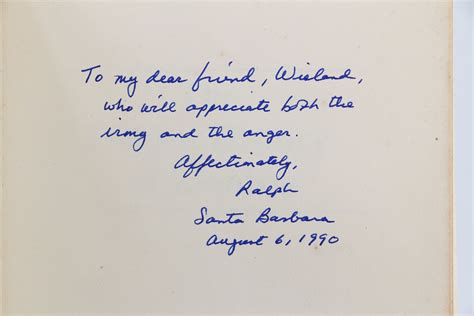 To my dear friend, Wieland,
who will appreciate both the
irony and the anger.
Affectionately,
Ralph
Santa Barbara
August 6, 1990